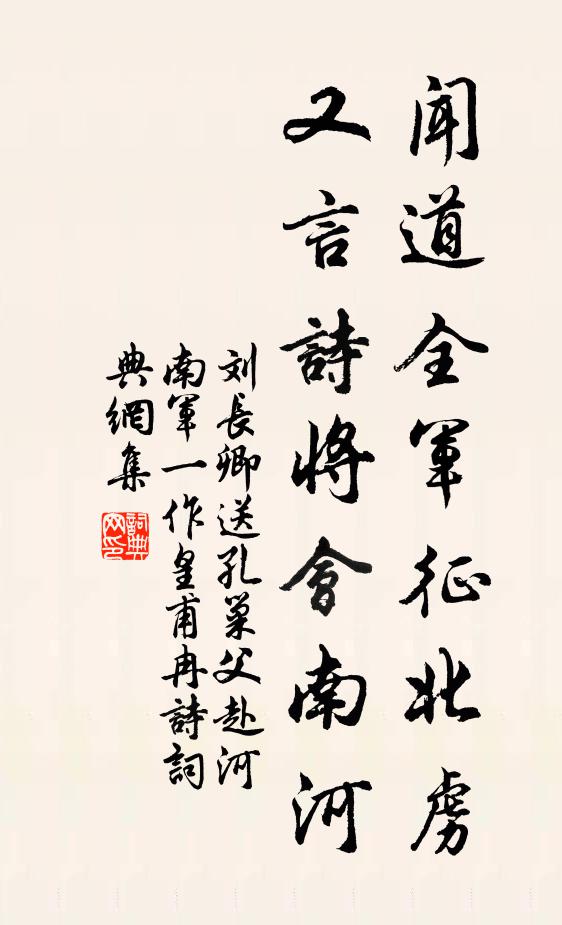 聞道全軍征北虜
又言詩將會南河
刘長卿送孔巢父赴河
南軍一作皇甫冉詩詞
典網集
詞典
网印